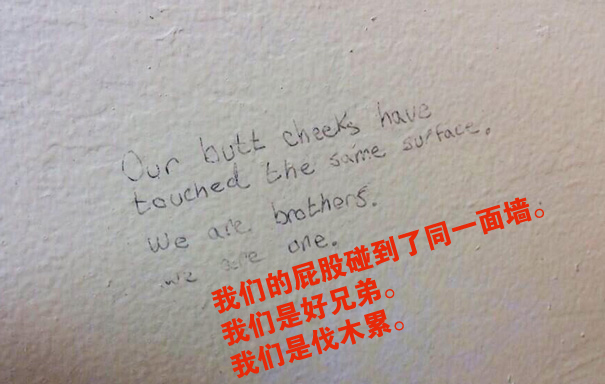 Our butt cheeks have
touched the same surface.
We are brothers.
we are one.
我们的屁股碰到了同一面墙。
我们是好兄弟。
我们是伐木累。